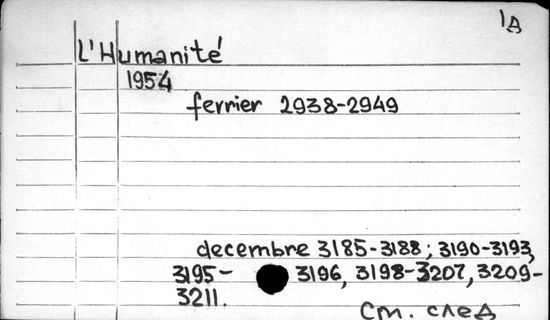 1A
L'Humanité
1954
fevrier 2938-2949
decembre 3185-3188; 3190-3193,
3195- 3196, 3198-3207, 3209-
3211.
См. след